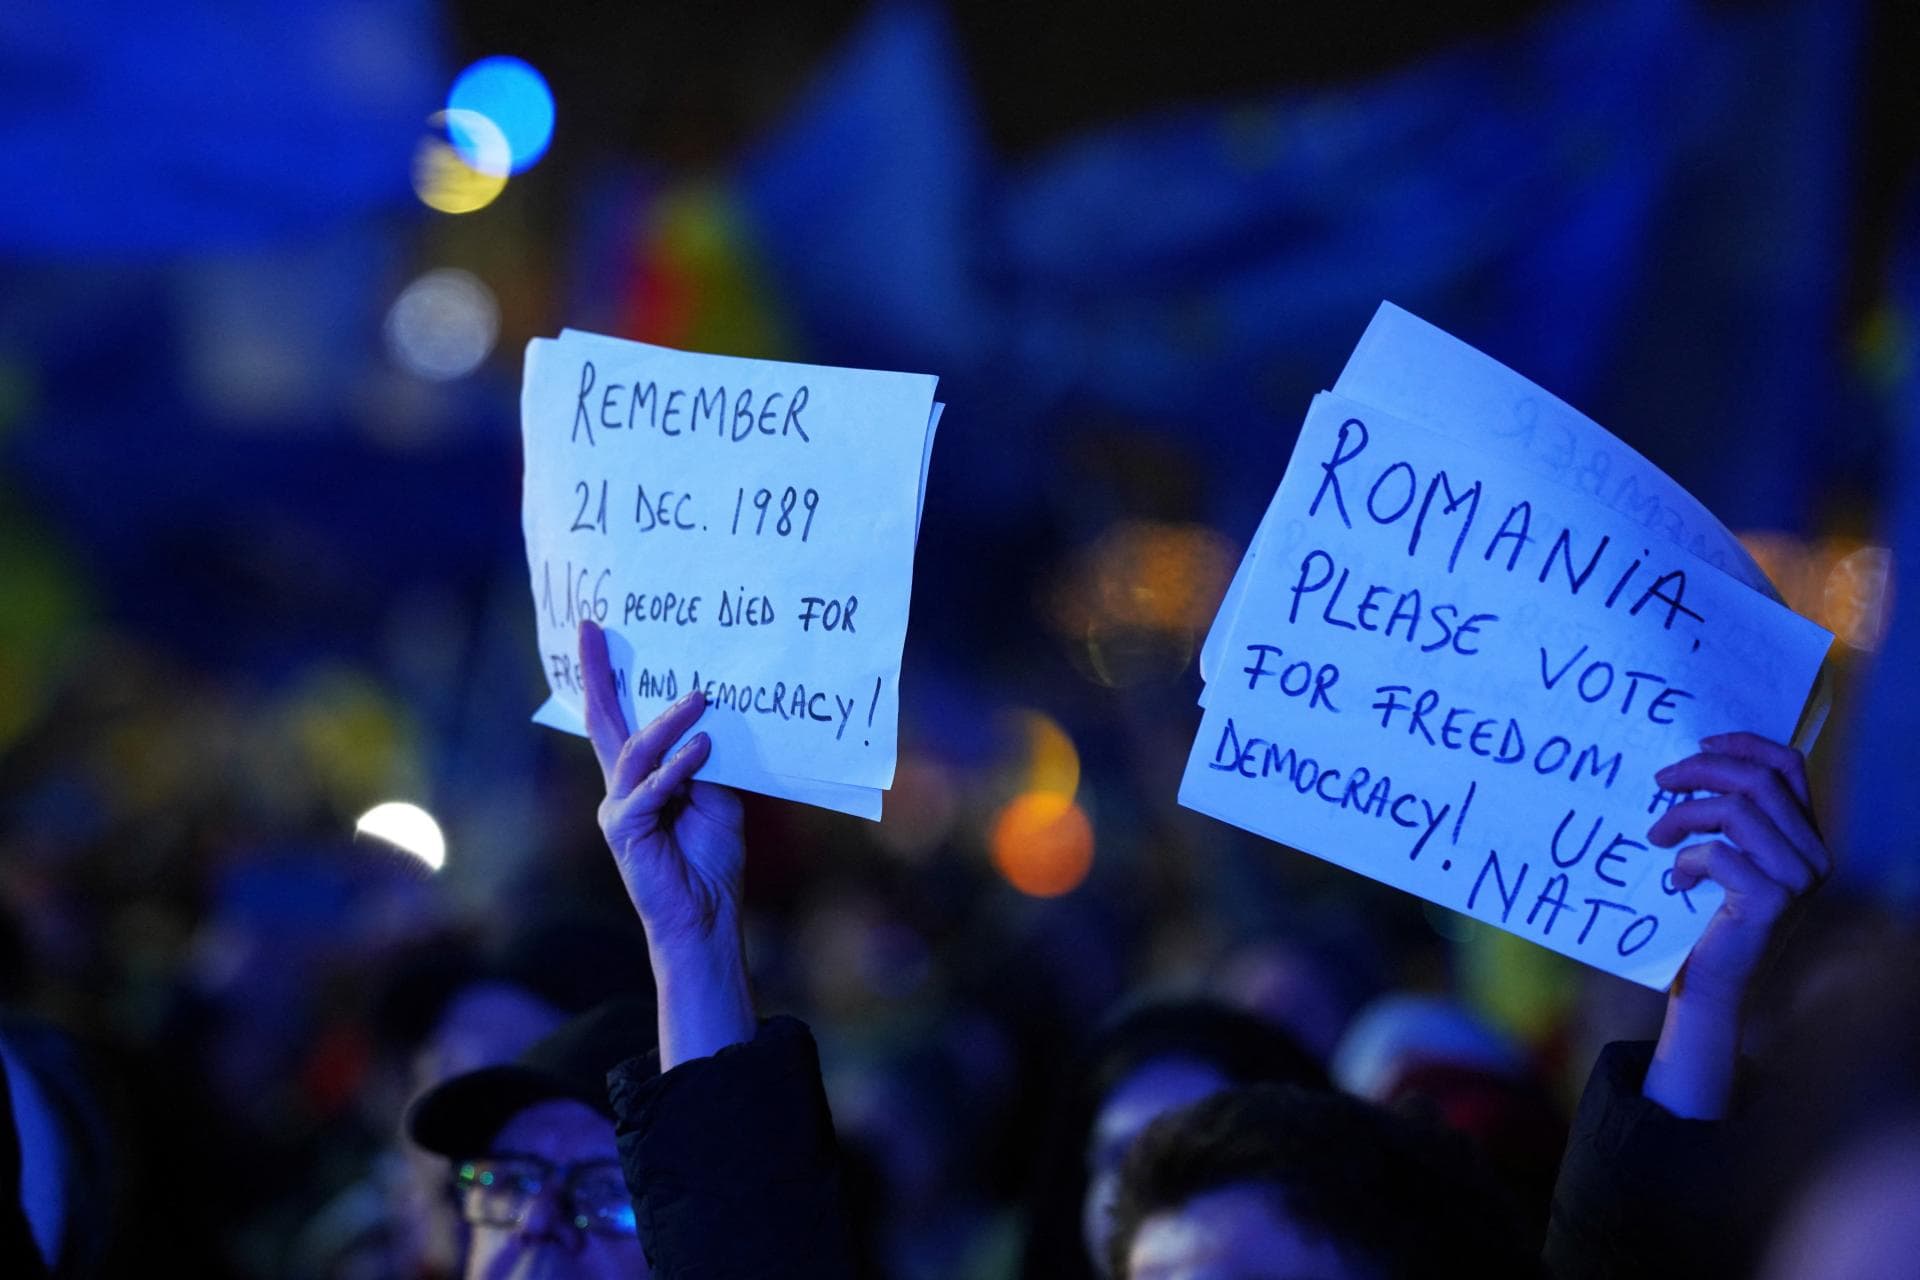 REMEMBER
21 DEC. 1989
1.166 PEOPLE DIED FOR
FREEDOM AND DEMOCRACY!
ROMANIA,
PLEASE VOTE
FOR FREEDOM
DEMOCRACY! UE &
NATO